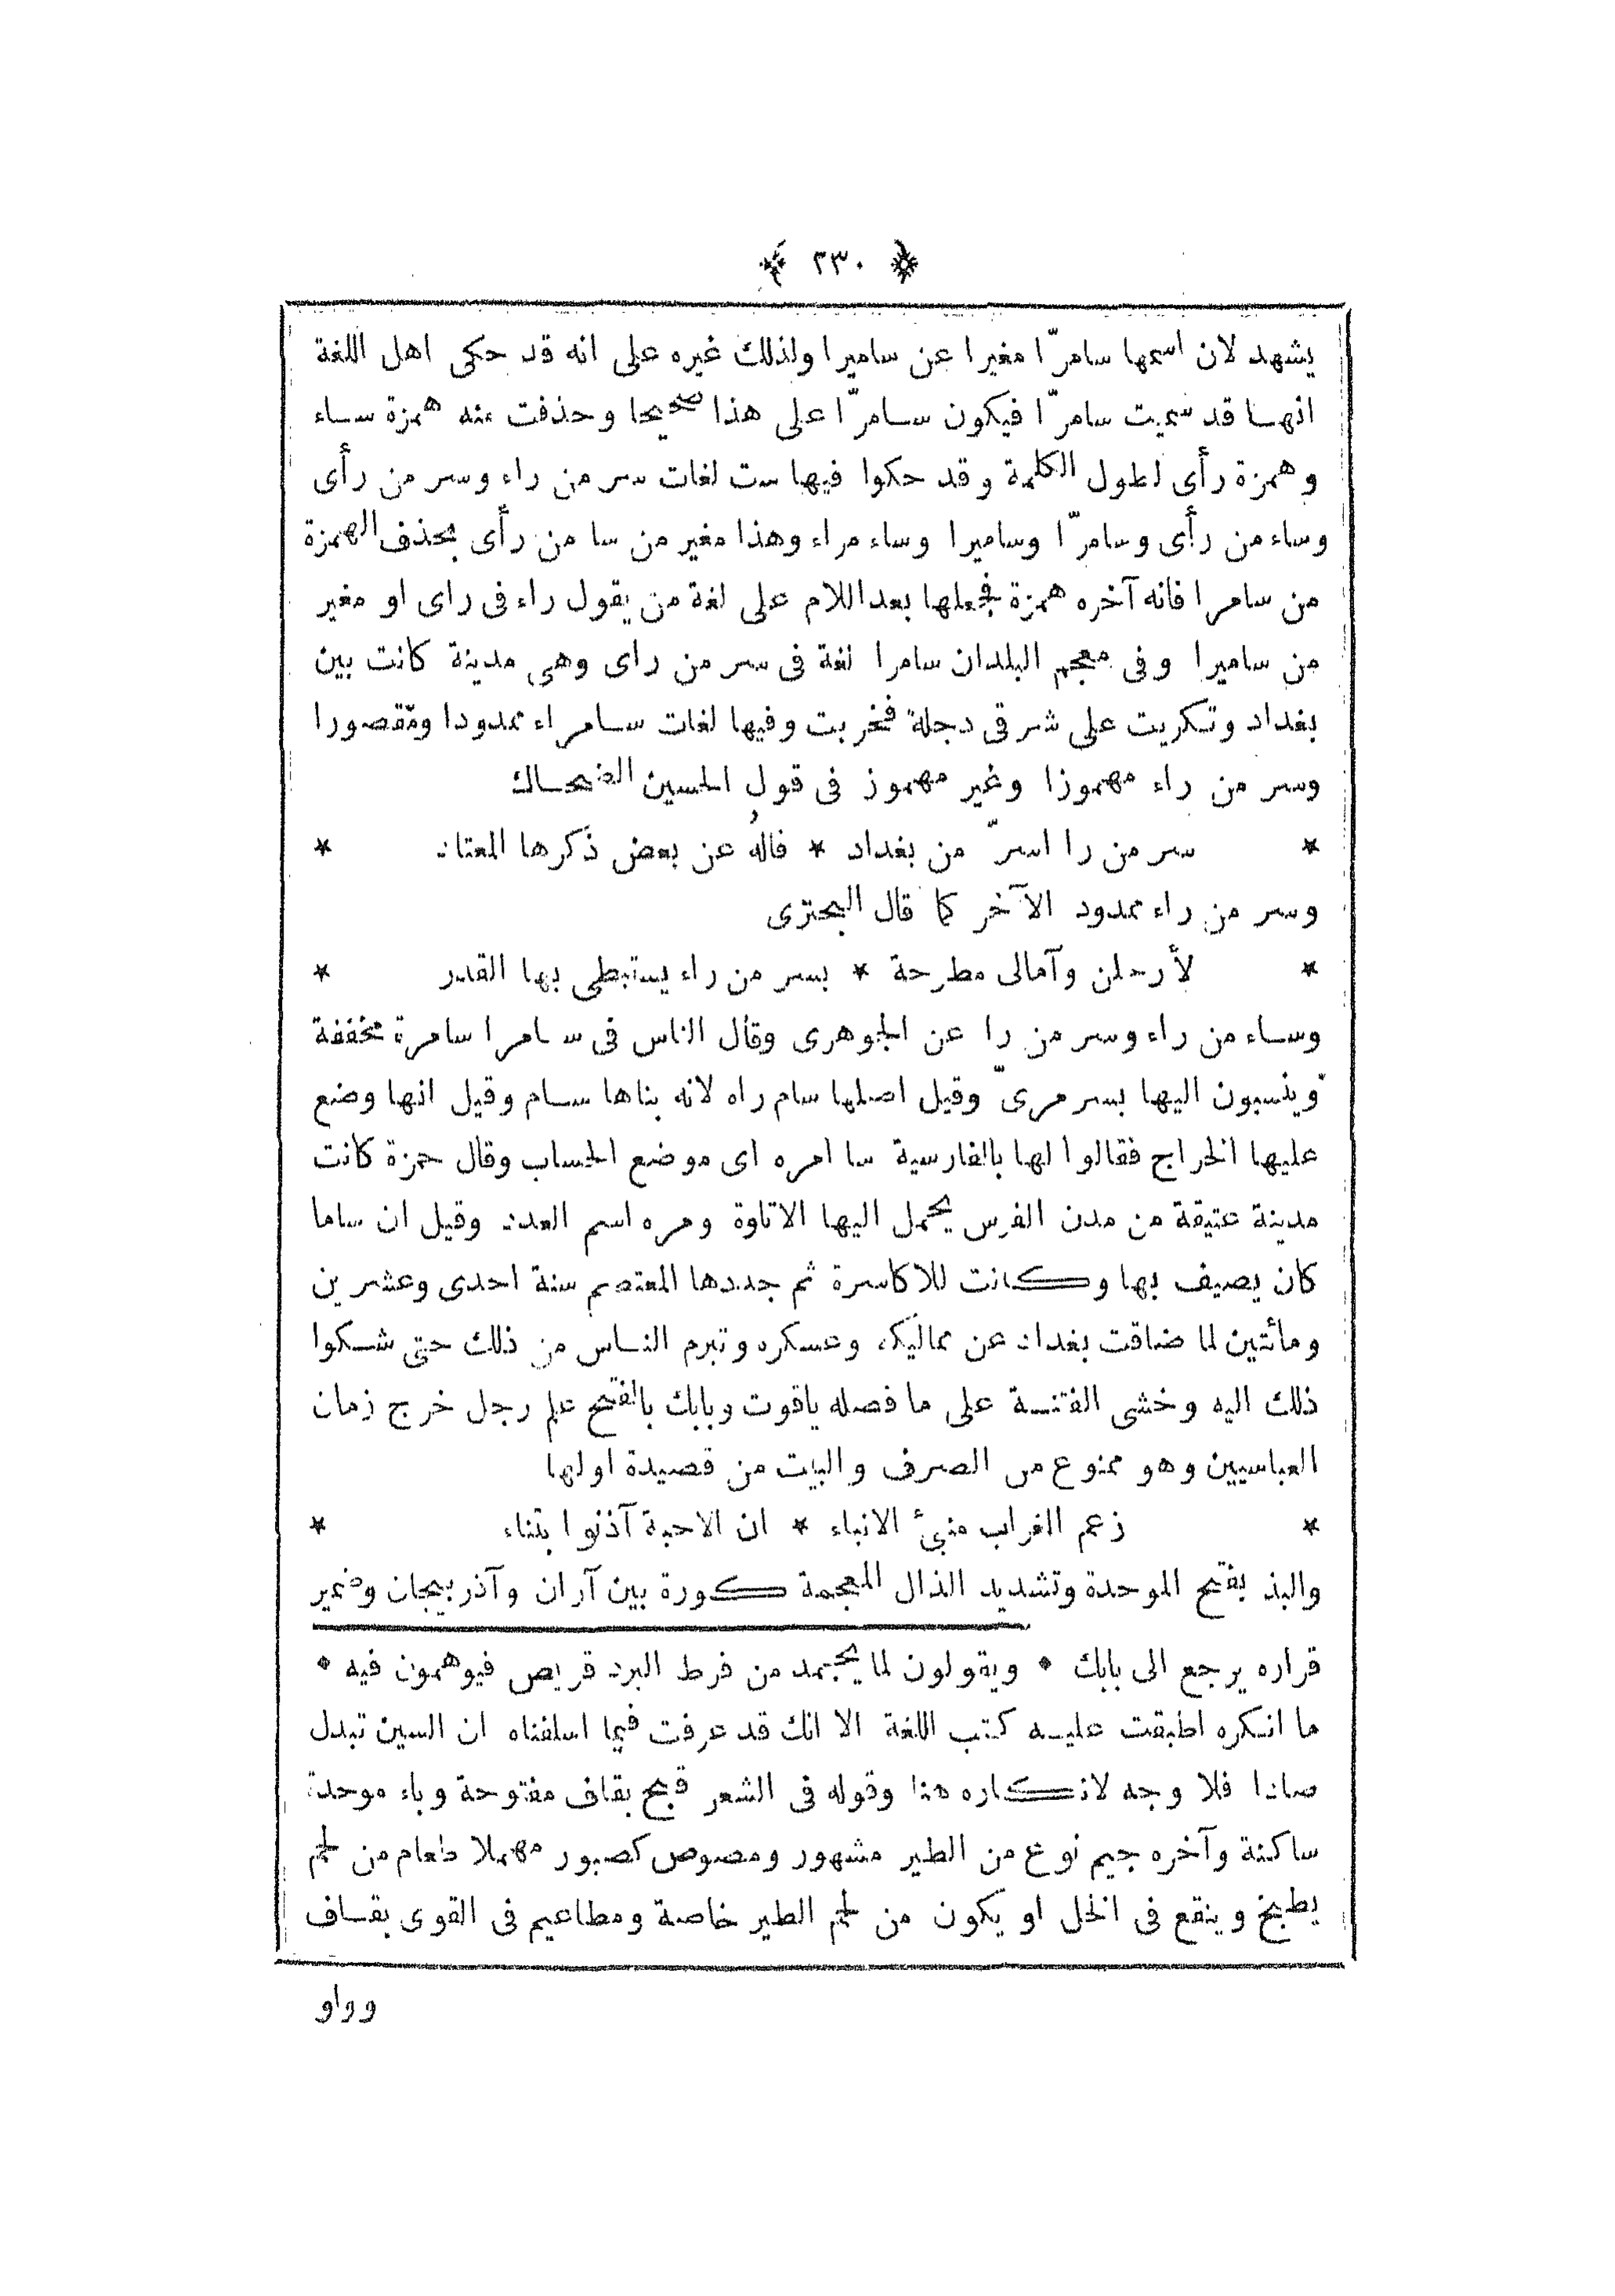 ﴿ ٢٣٠ ﴾
يشهد لان اسمها سامرّا مغيرا عن ساميرا ولذلك غيره على انه قد حكى اهل اللغة
انها قد سميت سامرّا فيكون سامرّا على هذا صحيحا وحذفت منه همزة ساء
وهمزة رأى لطول الكلمة وقد حكوا فيها ست لغات سر من راء وسر من رأى
وساء من رأى وسامرّا وساميرا وساء مراء وهذا مغير من سا من رأى بحذف الهمزة
من سامرا فانه آخره همزة فجعلها بعد اللام على لغة من يقول راء فى راى او مغير
من ساميرا وفى معجم البلدان سامرا لغة فى سر من راى وهى مدينة كانت بين
بغداد وتكريت على شرقى دجلة فخربت وفيها لغات سامراء ممدودا ومقصورا
وسر من راء مهموزا وغير مهموز فى قول الحسين الضحاك
* سر من را اسرّ من بغداد * فاله عن بعض ذكرها المعتاد *
وسر من راء ممدود الآخر كما قال البحترى
* لأرحلن وآمالى مطرحة * بسر من راء يستبطى بها القدر *
وساء من راء وسر من را عن الجوهرى وقال الناس فى سامرا سامرة مخففة
وينسبون اليها بسرمرىّ وقيل اصلها سام راه لانه بناها سام وقيل انها وضع
عليها الخراج فقالوا لها بالفارسية سا امره اى موضع الحساب وقال حمزة كانت
مدينة عتيقة من مدن الفرس يحمل اليها الاتاوة ومره اسم العدد وقيل ان ساما
كان يصيف بها وكانت للاكاسرة ثم جددها المعتصم سنة احدى وعشرين
ومأتين لما ضاقت بغداد عن مماليكه وعسكره وتبرم الناس من ذلك حتى شكوا
ذلك اليه وخشى الفتنة على ما فصله ياقوت وبابك بالفتح علم رجل خرج زمان
العباسيين وهو ممنوع من الصرف والبيت من قصيدة اولها
* زعم الغراب منبئ الانباء * ان الاحبة آذنوا بتناء *
والبذ بفتح الموحدة وتشديد الذال المعجمة كورة بين آران وآذربيجان وضمير
قراره يرجع الى بابك * ويقولون لما يجمد من فرط البرد قريص فيوهمون فيه *
ما انكره اطبقت عليه كتب اللغة الا انك قد عرفت فيما اسلفناه ان السين تبدل
صادا فلا وجه لانكاره هذا وقوله فى الشعر قبج بقاف مفتوحة وباء موحدة
ساكنة وآخره جيم نوع من الطير مشهور ومصوص كصبور مهملا طعام من لحم
يطبخ وينقع فى الخل او يكون من لحم الطير خاصة ومطاعيم فى القوى بقاف
وواو